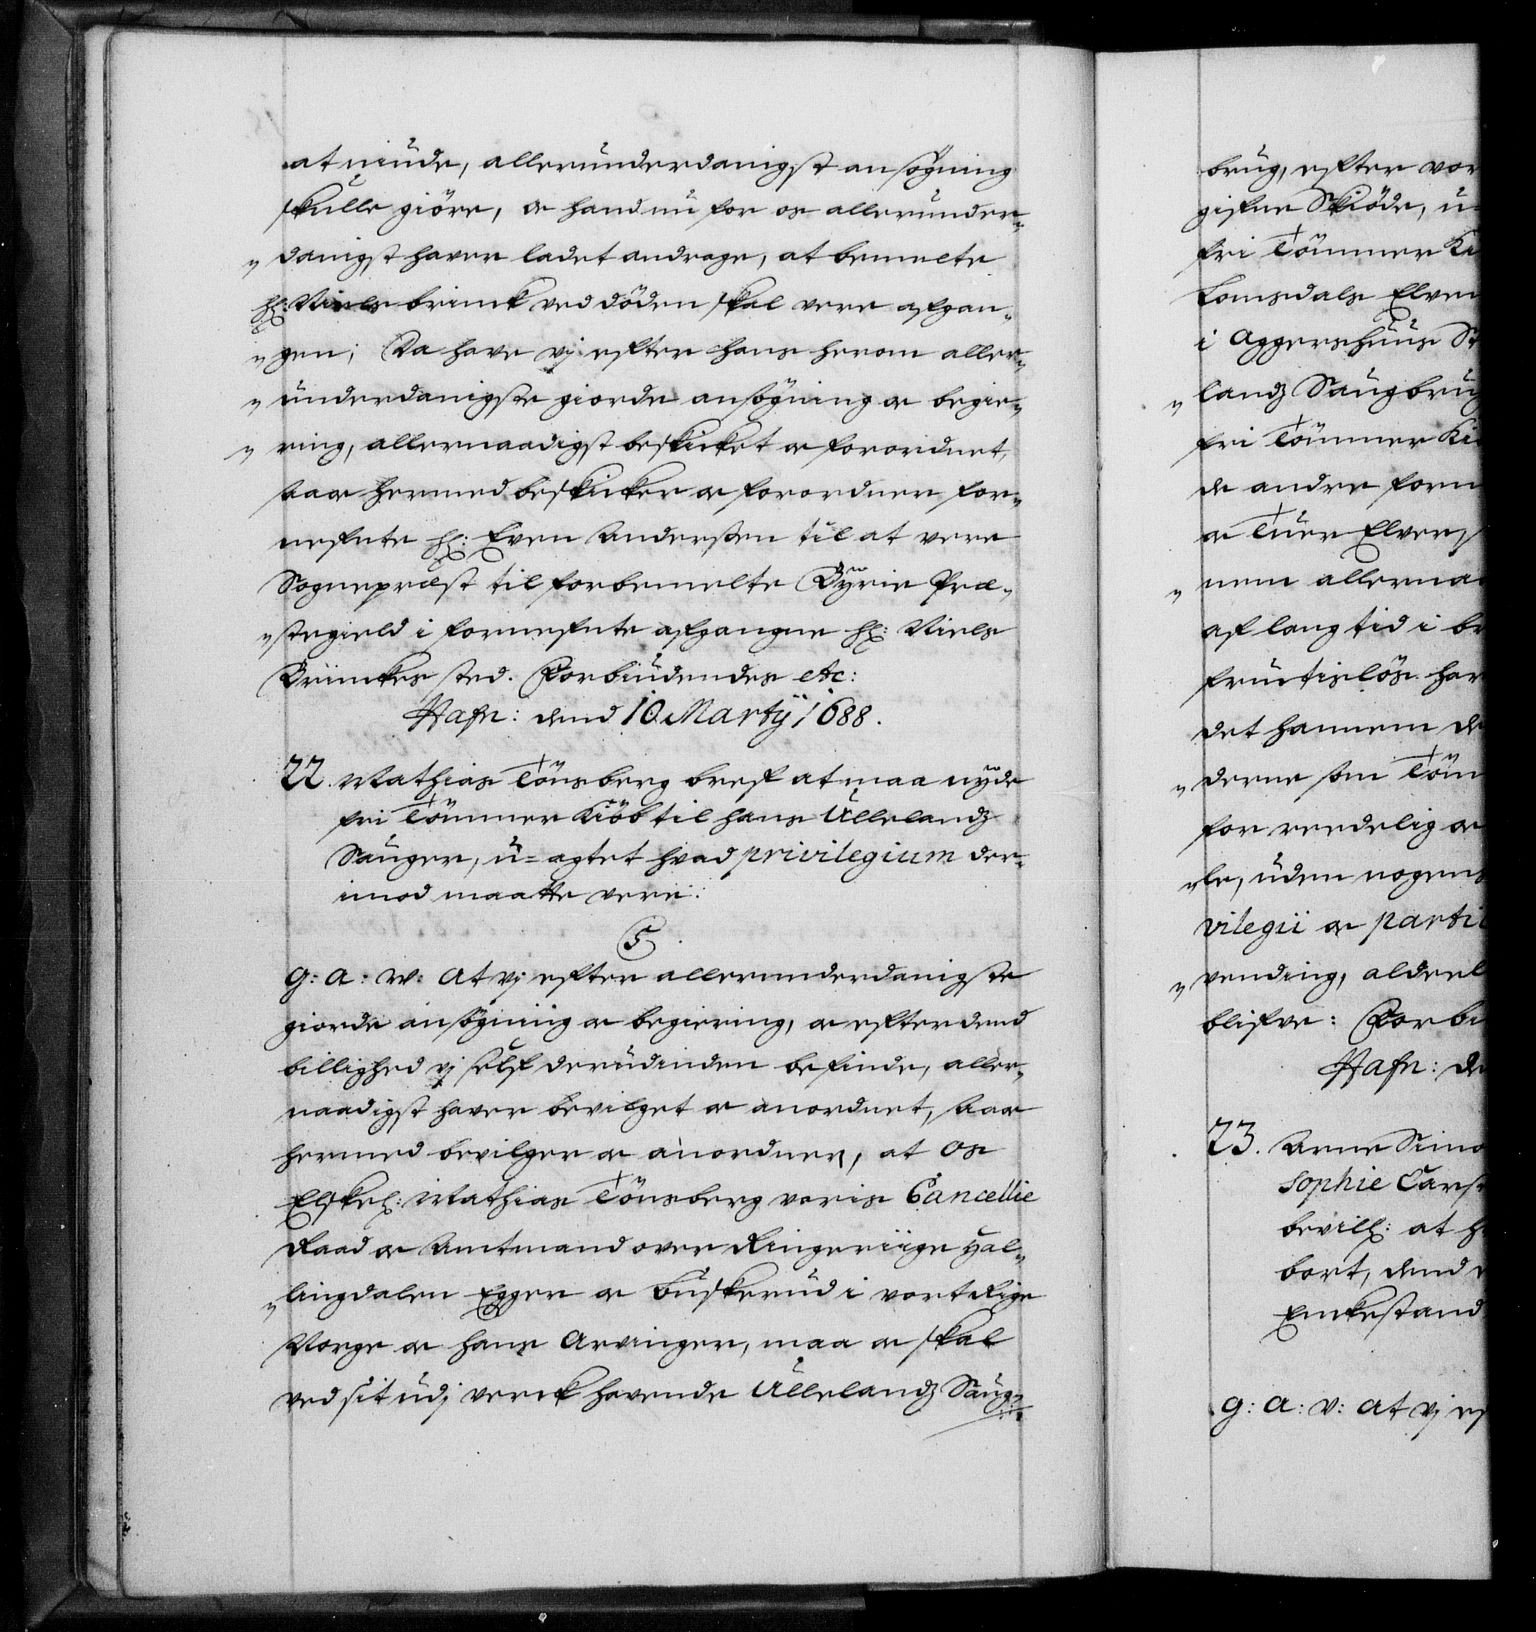 at niude, allerunderdanigst ansögning
skulle giöre, oc hand nu for os allerunder„
„danigst haver ladet andrage, at bemelte
Hr: Niels brinck ved döden skal vere afgan„
„gen; Da have vj efter hans herom aller„
„underdanigste giorde ansögning oc begie„
„ring, allernaadigst beskicket oc forordnet,
saa hermed beskicker oc forordner for„
nefnte Hr: Even Andersen til at vere
Sognepræst til forbemelte Byrie Præ„
„stegield i fornefnte afgangne Hr: Niels
Brinckes sted. Forbiudendes etc:
Hafn: dend 10 Martÿ 1688.
22. Mathias Tönsberg bref at maa nyde
fri Tömmer Kiöb til hans Ullelandz
Sauger, u=agtet hvad privilegium der„
imod maatte vere:
5
G: A: W: At vj efter allerunderdanigste
giorde ansögning oc begiering, oc efter dend
billighed vj self derudinden befinde, aller„
naadigst haver bevilget oc anordnet, saa
hermed bevilger oc anordner, at os
Elskel: Mathias Tönsberg voris Cancellie
Raad oc Amtmand over Ringeriige Hal„
„lingdalen Egger oc buskerud i vort Rige
Norge oc hans Arvinger, maa oc skal
ved sit udj verck havende Ullelandz Saug„
brug, efter vor
gifne Skiöde, u=
fri Tömmer Ki
Lomsdals Elven
i Aggershuus St
„landz Saugbrug
fri Tömmer Ki
de andre forn
oc Tuer Elvers
„nem allerna
af lang tid i be
fructislös har
det hannem de
„derne som Töm
for reedelig oc
„le, uden nogens
vilegii oc parti
„vending, aldeel
blifve: Forbi
Hafn: de
23. Arne Simo
Sophie Carst
bevill: at h
bort, dend
Enckestand
G: A: V: At vj ef